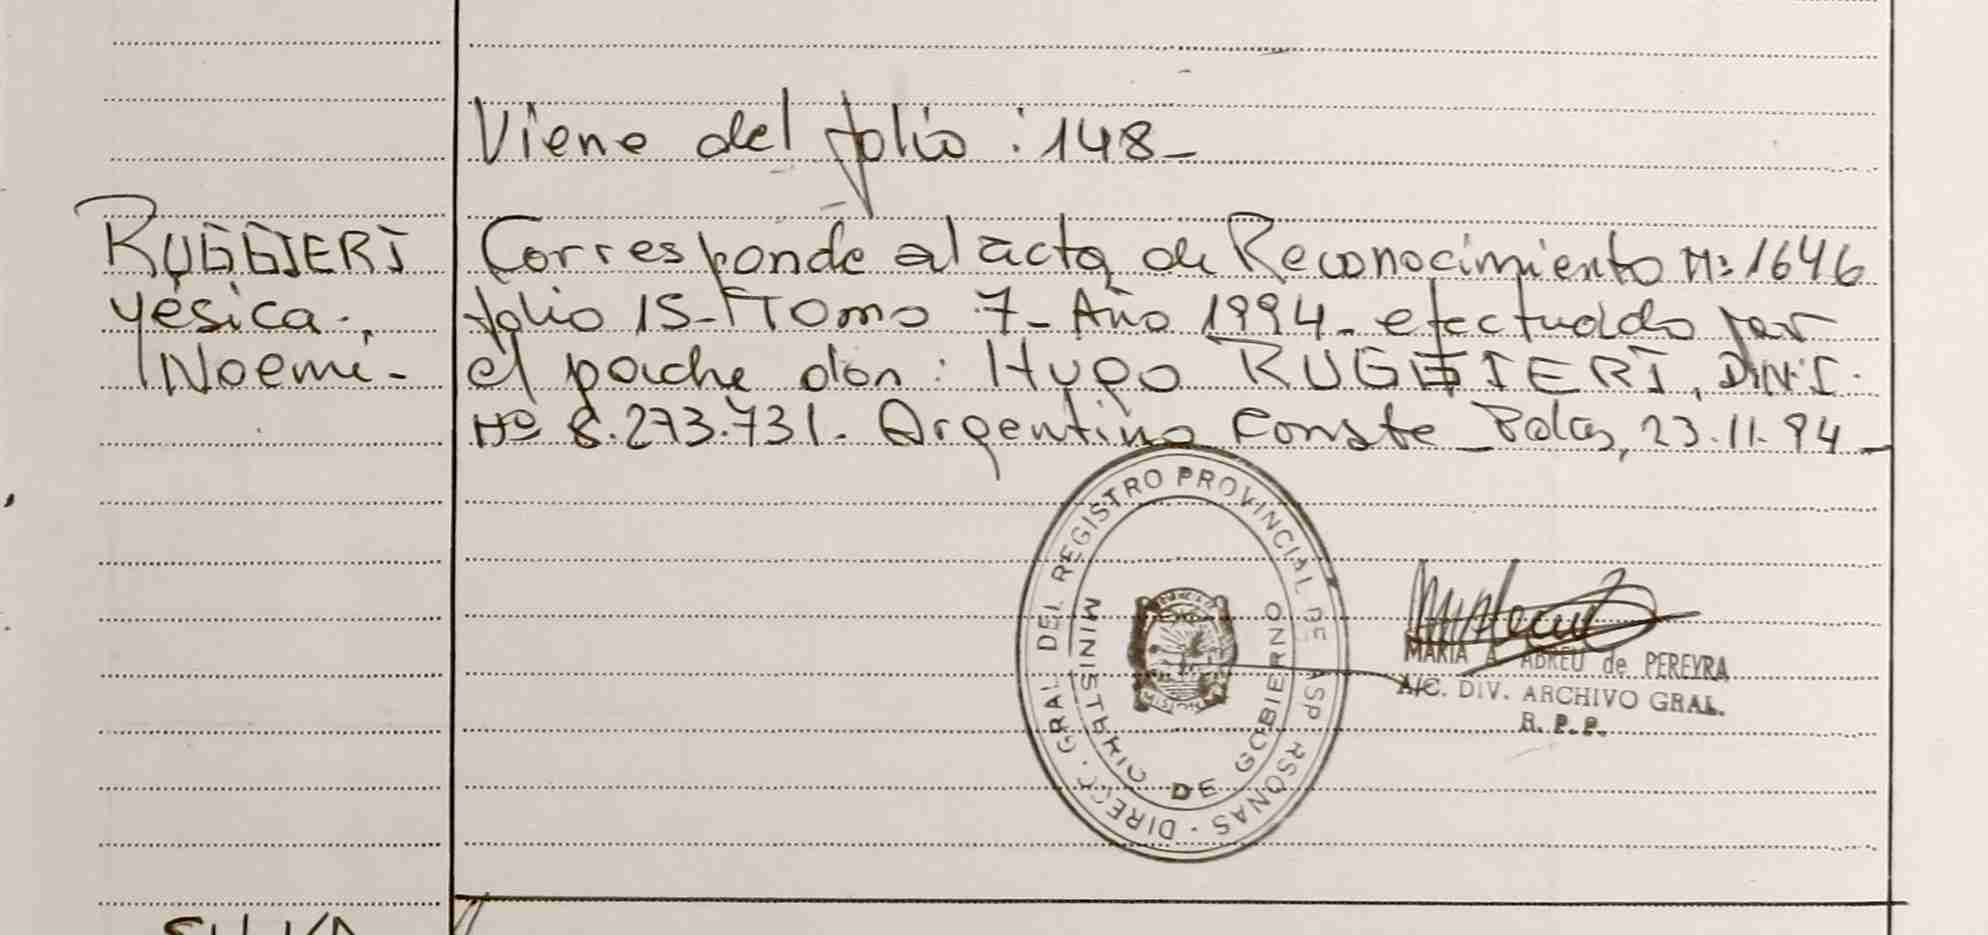 Viene del folio : 148_
RUGGIERI
Yésica.,
Noemi-
Corresponde al acta de Reconocimiento Nº 1646
folio 15- Tomo 7- Año 1994- efectuado por
el padre don: Hugo RUGGIERI, D.N.I.
Nº 8.273.731. Argentino Conste _Pdas, 23.11.94_
DIRECC. GRAL DEL REGISTRO PROVINCIAL DE PERSONAS
MINISTERIO DE GOBIERNO
MARIA A. ABREU de PEREYRA
A/C. DIV. ARCHIVO GRAL.
R. P. P.
SILVA